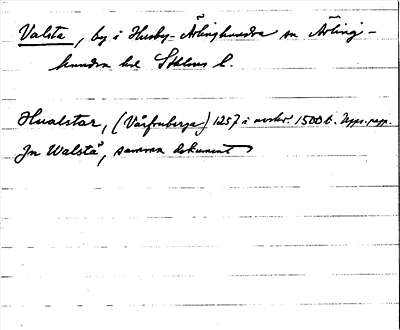 Valsta, by i Husby-Ärlinghundra sn Ärling-
hundra hd Sthlms l.
Hvalstar, (Vårfruberga) 1257 i avskr. 1500 t. Upps. pap.
Jn Walstå, samma dokument